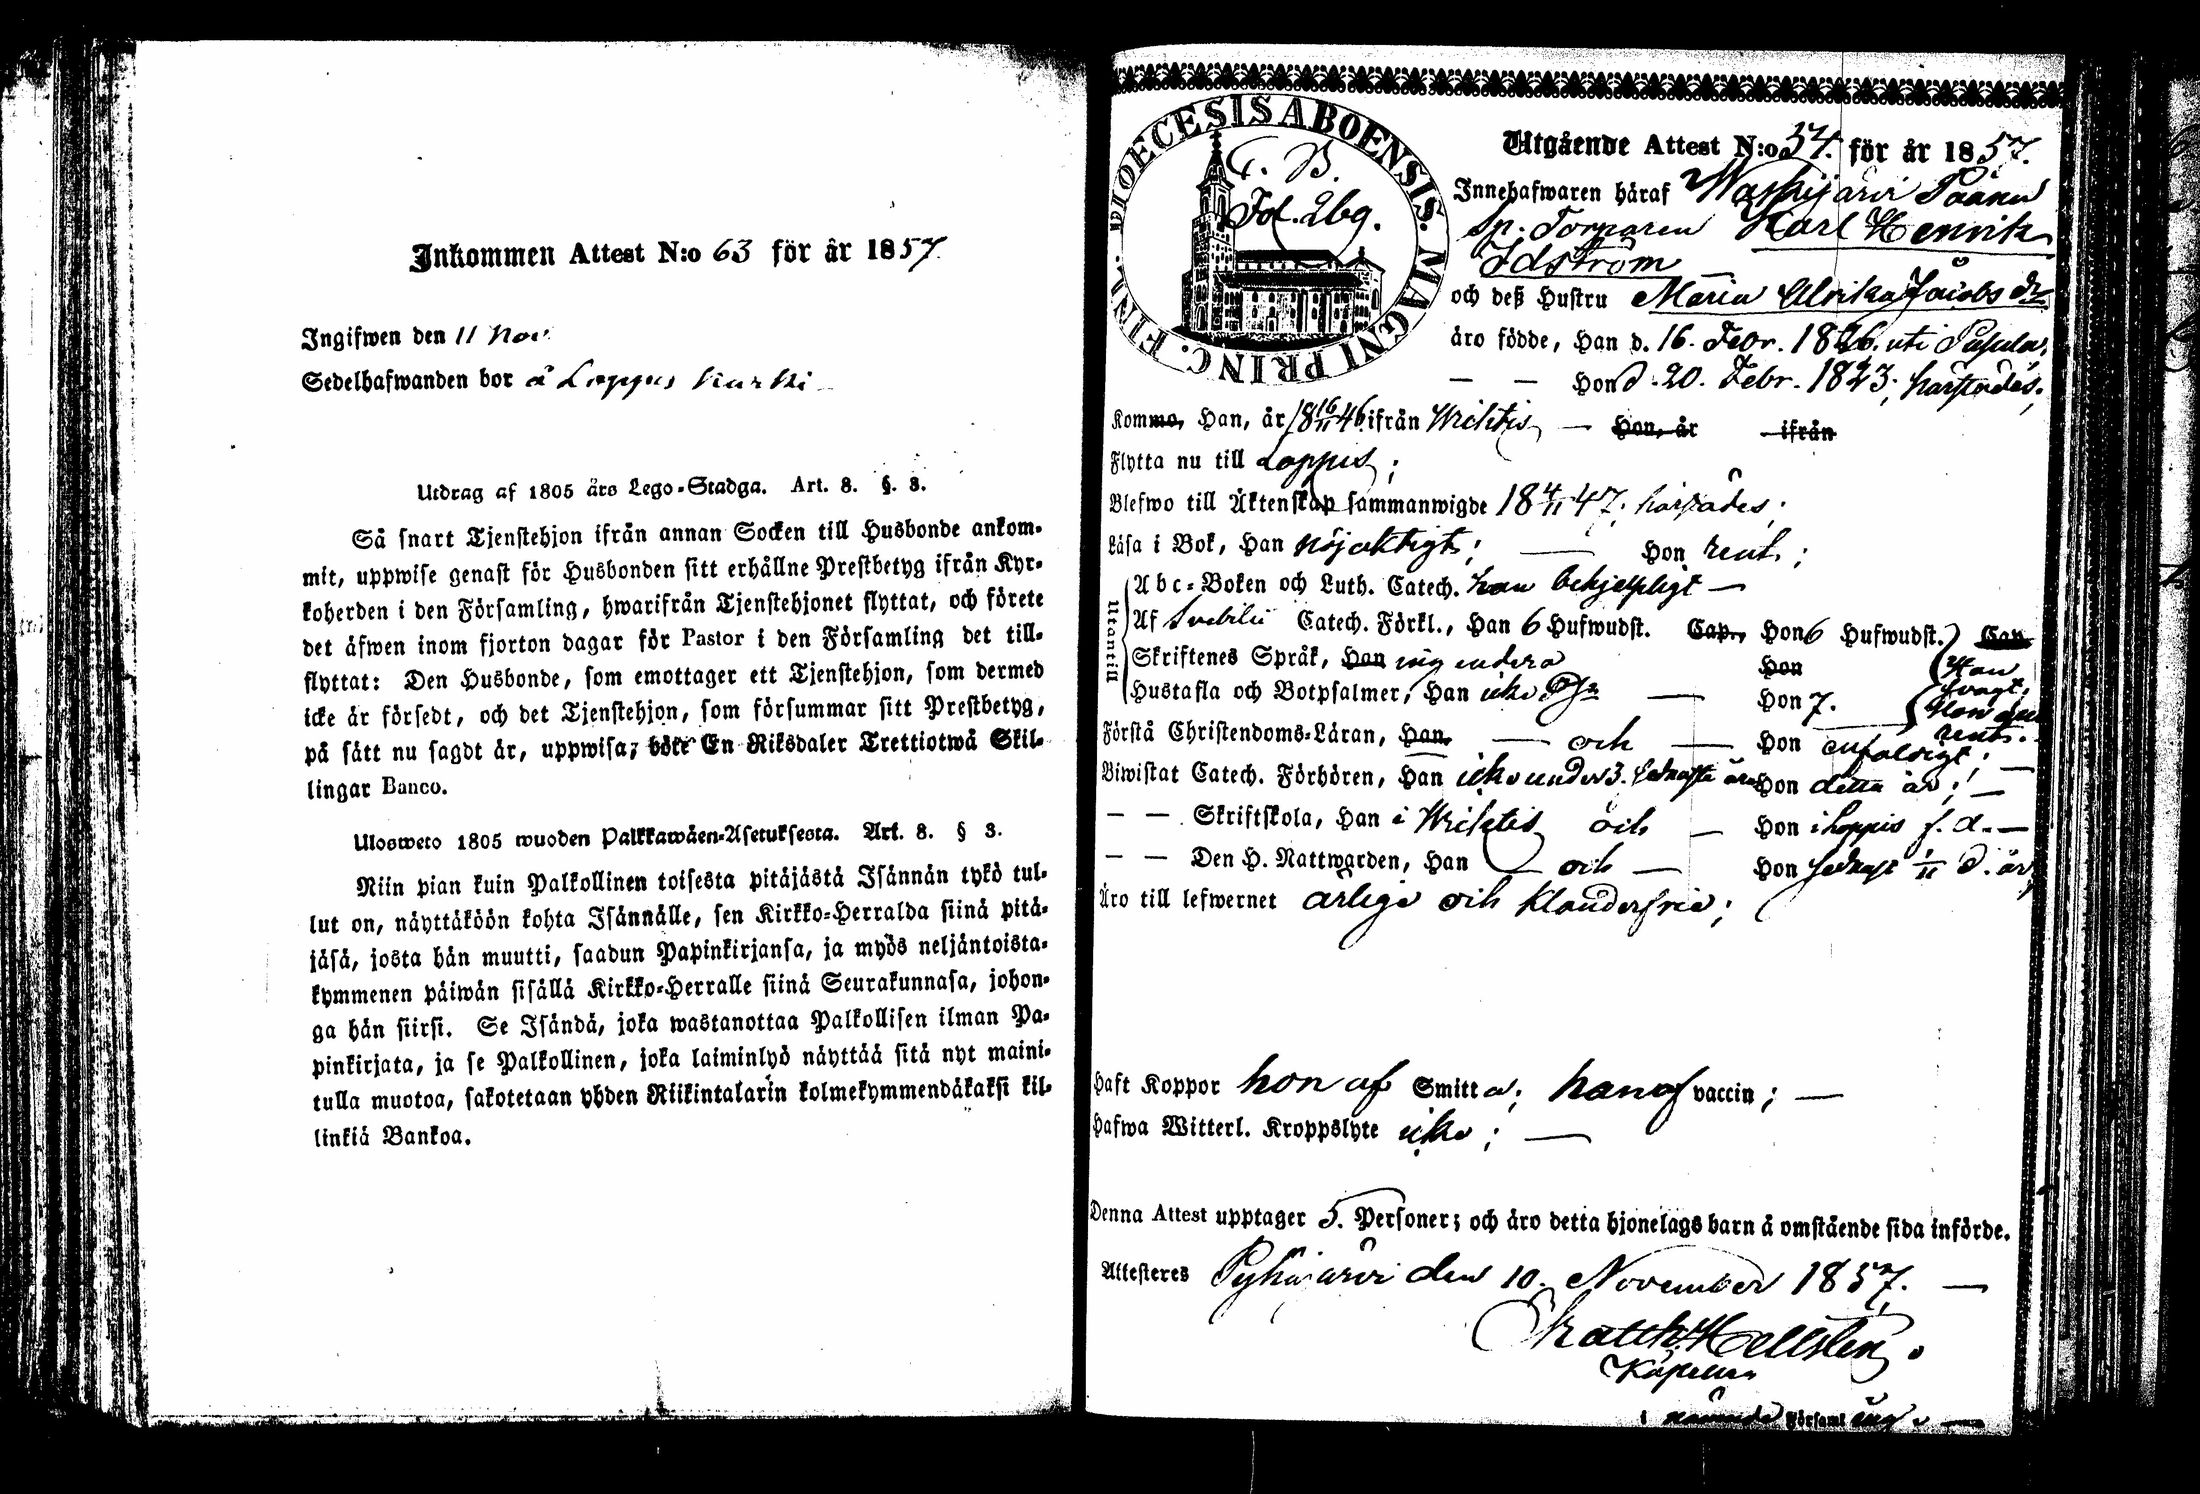 Inkommen Attest N:o 63 för år 1857.
Ingifwen den 11 Nov
Sedelhafwanden bor å Loppis Kurki
Utdrag af 1805 års Lego-Stadga. Art. 8. §. 3.
Så snart Tjenstehjon ifrån annan Socken till Husbonde ankom-
mit, uppwise genast för Husbonden sitt erhållne Prestbetyg ifrån Kyr-
koherden i den Församling, hwarifrån Tjenstehjonet flyttat, och förete
det äfwen inom fjorton dagar för Pastor i den Församling det till-
flyttat: Den Husbonde, som emottager ett Tjenstehjon, som dermed
icke är försedt, och det Tjenstehjon, som försummar sitt Prestbetyg,
på sätt nu sagdt är, uppwisa, böte En Riksdaler Trettiotwå Skil-
lingar Banco.
Ulosweto 1805 wuoden Palkkawäen-Asetuksesta. Art. 8. § 3.
Niin pian kuin Palkollinen toisesta pitäjästä Isännän tykö tul-
lut on, näyttäköön kohta Isännälle, sen Kirkko-Herralda siinä pitä-
jäsä, josta hän muutti, saadun Papinkirjansa, ja myös neljäntoista-
kymmenen päiwän sisällä Kirkko-Herralle siinä Seurakunnasa, johon-
ga hän siirsi. Se Isändä, joka wastanottaa Palkollisen ilman Pa-
pinkirjata, ja se Palkollinen, joka laiminlyö näyttää sitä nyt maini-
tulla muotoa, sakotetaan yhden Riikintalarin kolmekymmendäkaksi kil-
linkiä Bankoa.
DIOECESIS ABOENSIS. MAGNI PRINC. FINL.
C. B.
Fol. 269.
Utgående Attest N:o 37. för år 1857.
Innehafwaren häraf Waskijärvi Paanu
sp. Torparen Karl Henrik
Idström
och deß Hustru Maria Ulrika Jacobs dr
äro födde, Han d. 16. Febr. 1826. uti Pusula,
— — Hon d. 20. Febr. 1823; härstädes;
Kommo, Han, år 18 16/11 46 ifrån Wichtis — Hon, år ifrån
Flytta nu till Loppis;
Blefwo till Äktenskap sammanwigde 18 4/11 47; härstädes;
Läsa i Bok, Han nöjaktigt; — Hon rent;
Utantill
Abc-Boken och Luth. Catech. han behjelpligt —
Af Svebilii Catech. Förkl., Han 6 Hufwudst. Cap., Hon 6 Hufwudst. Cap.
Skriftenes Språk, Han ingendera Hon
Han svagt,
Hustafla och Botpsalmer, Han icke — Hon 7.
Hon rent.
Förstå Christendoms-Läran, Han — och — Hon enfaldigt; —
Biwistat Catech. Förhören, Han icke under 3. sednaste åren Hon detta år; —
— — Skriftskola, Han i Wichtis och — Hon i Loppis f. d. —
— — Den H. Nattwarden, Han — och — Hon sednast 1/11 d. år,
Äro till lefwernet ärlige och klanderfrie;
Haft Koppor hon af Smitta; han af vaccin; —
Hafwa Witterl. Kroppslyte icke; —
Denna Attest upptager 5. Personer; och äro detta hjonelags barn å omstående sida införde.
Attesteres Pyhäjärvi den 10. November 1857. —
Matth. Hellsten.
Kapellan
i nämnde Församling. —